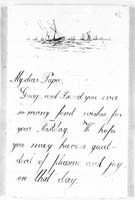 My dear Papa,
Georgy and I send you ever
so many fond wishes for
your birthday. We hope
you may have a good
deal of pleasure and joy
on that day.